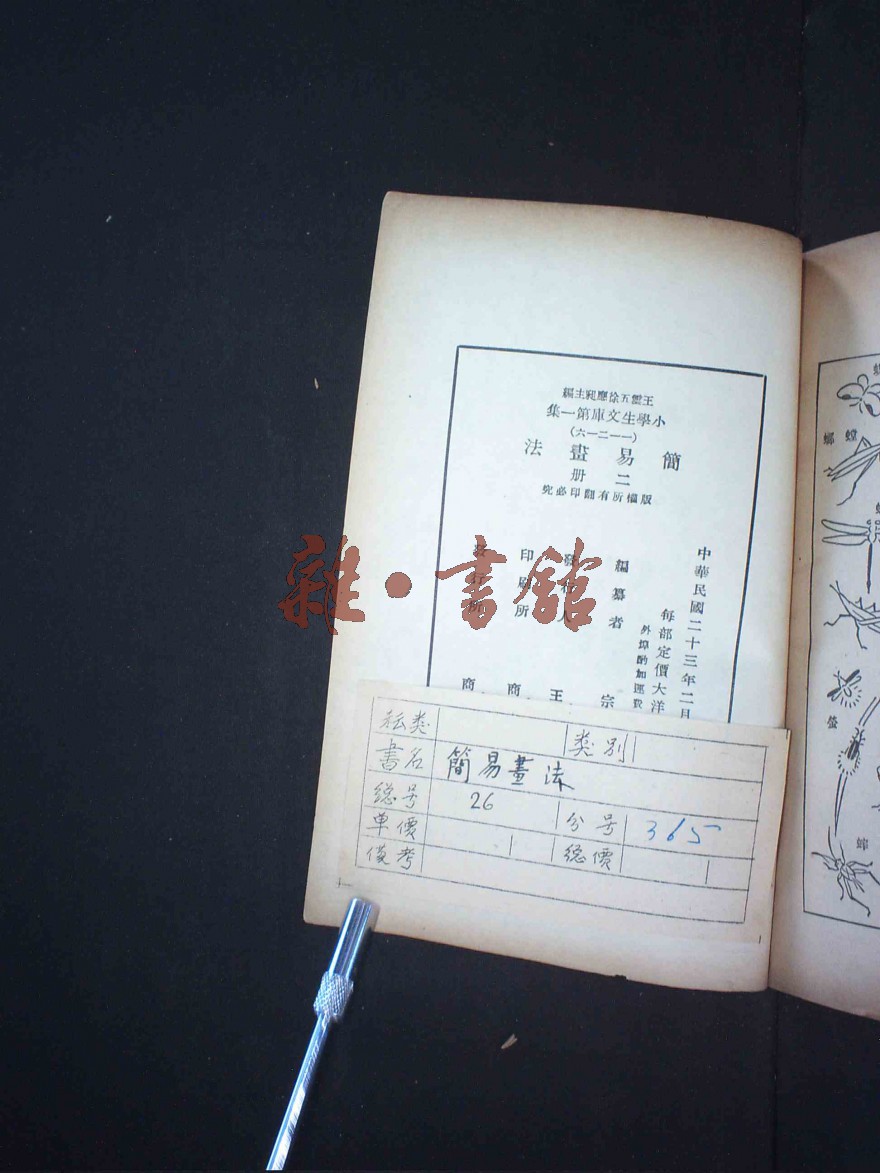 王雲五徐應昶主編
小學生文庫第一集
(一一二一六)
簡易畫法
二册
版權所有翻印必究
中華民國二十三年二月
每部定價大洋
外埠酌加運費
編纂者 宗
發行人 王
印刷所 商
發行所 商
雜·書館
耘类 类别
書名 簡易畫法
總号 26 分号 365
单價 總價
俻考
螳螂
螢
蟀